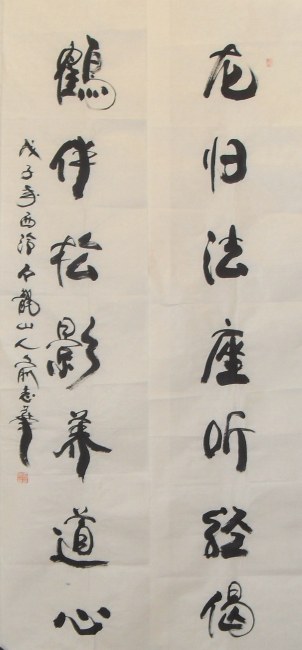 龙归法座听经偈
鹤伴松影养道心
戊子年西泠石龙山人俞志华